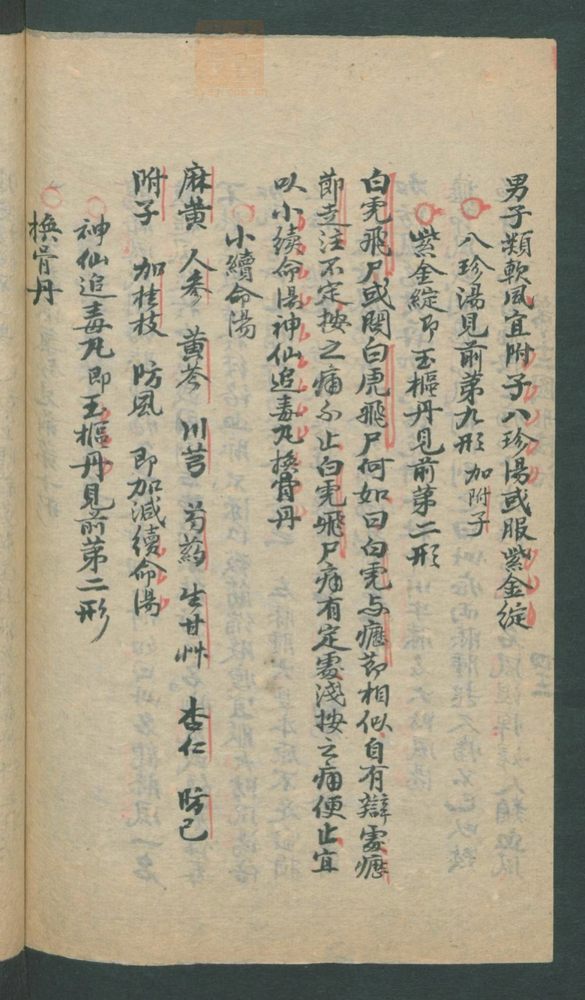 男子類軟風宜附子八珍湯或服紫金綻
八珍湯見前第九形 加附子
紫金綻即玉樞丹見前第二形
白虎飛尸或問白虎飛尸何如曰白虎与癧節相似自有辯處癧
節走注不定按之痛不止白虎飛尸痛有定處淺按之痛便止宜
以小續命湯神仙追毒丸換骨丹
小續命湯
麻黄 人参 黄芩 川芎 芍藥 生甘艸 杏仁 防己
附子 加桂枝 防風 即加減續命湯
神仙追毒丸即玉樞丹見前第二形
換骨丹